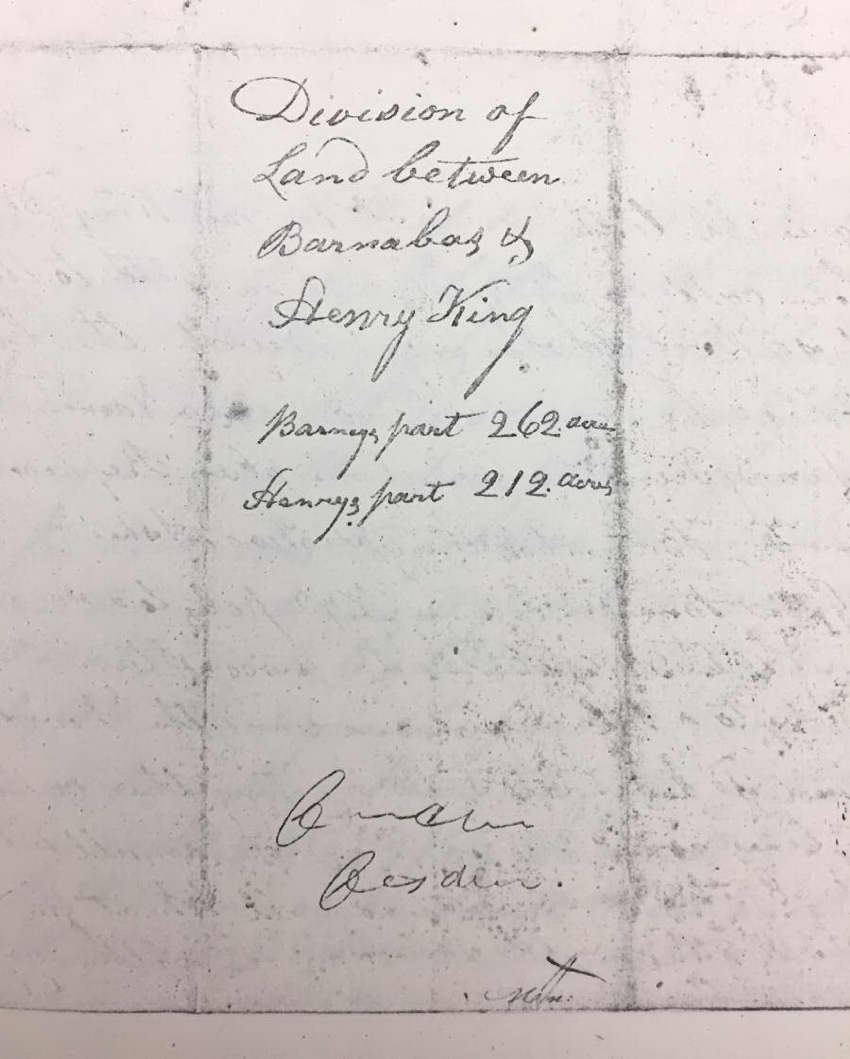 Division of
Land between
Barnabas &
Henry King
Barneys part 262 acres
Henrys part 212 acres